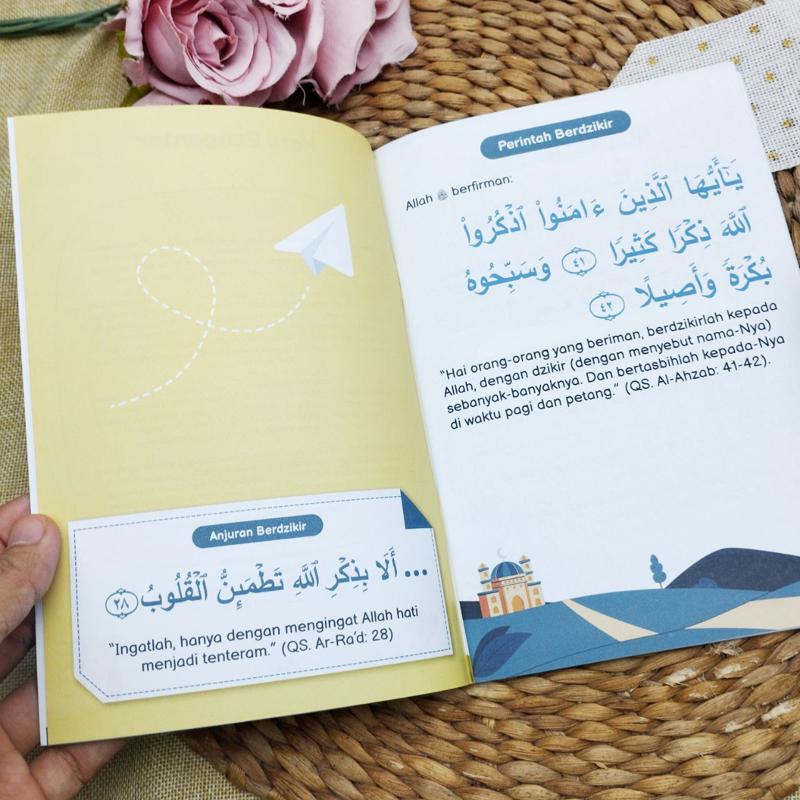 Anjuran Berdzikir
... أَلَا بِذِكْرِ ٱللَّهِ تَطْمَئِنُّ ٱلْقُلُوبُ ٢٨
"Ingatlah, hanya dengan mengingat Allah hati
menjadi tenteram." (QS. Ar-Ra'd: 28)
Perintah Berdzikir
Allah ﷻ berfirman:
يَـٰٓأَيُّهَا ٱلَّذِينَ ءَامَنُوا۟ ٱذْكُرُوا۟
ٱللَّهَ ذِكْرًا كَثِيرًا ٤١ وَسَبِّحُوهُ
بُكْرَةً وَأَصِيلًا ٤٢
"Hai orang-orang yang beriman, berdzikirlah kepada
Allah, dengan dzikir (dengan menyebut nama-Nya)
sebanyak-banyaknya. Dan bertasbihlah kepada-Nya
di waktu pagi dan petang." (QS. Al-Ahzab: 41-42).